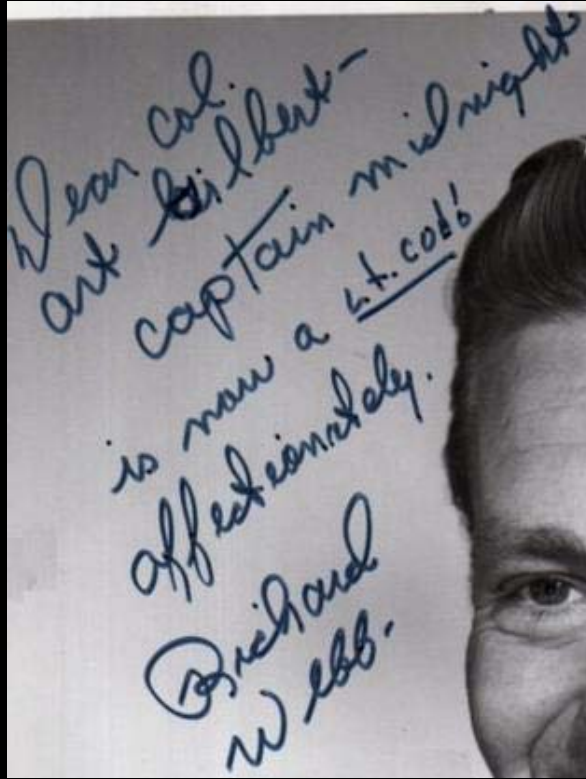 Dear Col.
Art Gilbert-
Captain midnight
is now a Lt. Col!
Affectionately.
Richard
Webb.